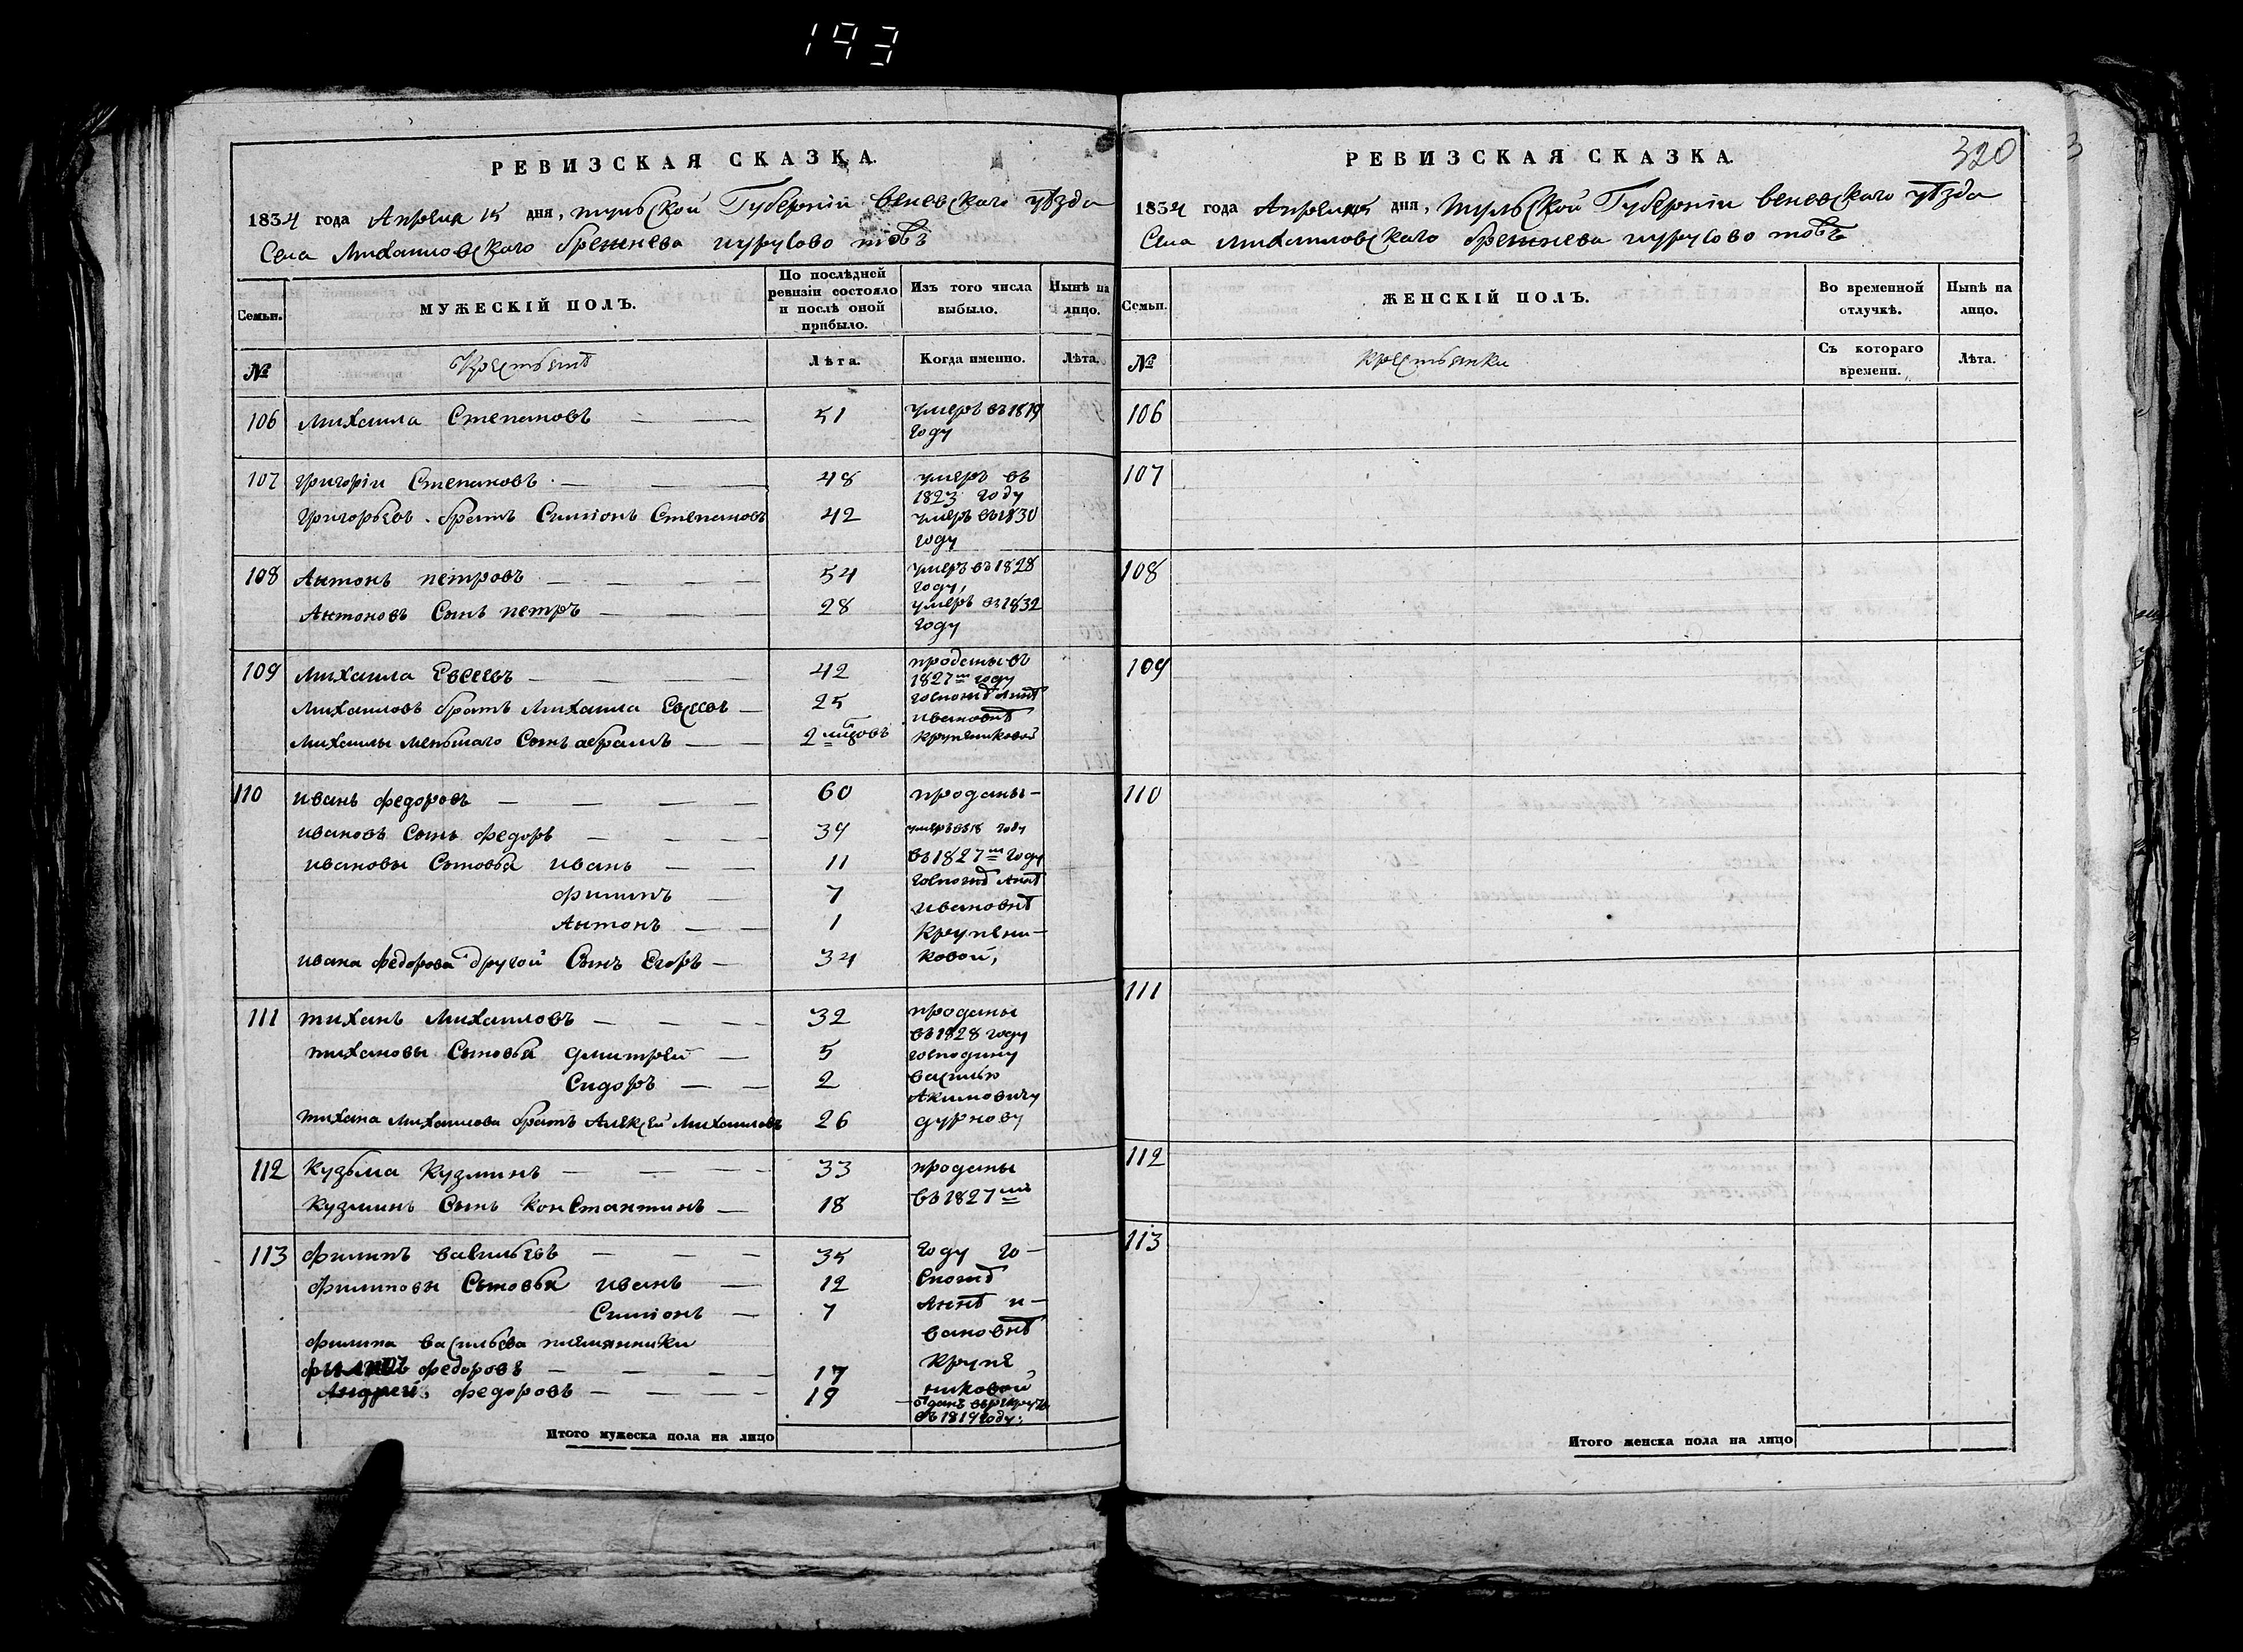 193
РЕВИЗСКАЯ СКАЗКА.
1834 года Апреля 15 дня, тульской Губерніи веневскаго уѣзда
Села Михаиловскаго брежнева чурусово тожъ
Семьи.
МУЖЕСКІЙ ПОЛЪ.
По послѣдней ревизіи состояло и послѣ оной прибыло.
Изъ того числа выбыло.
Нынѣ на лицо.
№
Крестьянѣ
Лѣта.
Когда именно.
Лѣта.
106 Михаила Степановъ 51 умеръ въ 1819
году
107 григоріи Степановъ 48 умеръ въ
1823 году
григорьевъ братъ Симіонъ Степановъ 42 умеръ въ 1830
году
108 Антонъ петровъ 54 умеръ въ 1828
году,
Антоновъ Сынъ петръ 28 умеръ въ 1832
году
109 Михаила Евсеевъ 42 проданы въ
1827м году
Михаиловъ братъ Михаила Евсеевъ 25 госпожѣ Аннѣ
ивановнѣ
Михаилы меньшаго Сынъ абрамъ 2 крупениковой
110 иванъ федоровъ 60 проданы
ивановъ Сынъ федоръ 39 умеръ въ 18 году
ивановы Сыновья иванъ 11 въ 1827м году
филипъ 7 госпожѣ Аннѣ
ивановнѣ
Антонъ 1 Крупени-
ивана федорова другой Сынъ Егоръ 34 ковой,
111 тиханъ Михаиловъ 32 проданы
въ 1828 году
тихановы Сыновья дмитрей 5 господину
Сидоръ 2 василью
Акимовичу
тихана михаилова братъ Алексей Михаиловъ 26 дурнову
112 Кузьма Кузминъ 33 проданы
Кузминъ Сынъ Константинъ 18 въ 1827мъ
113 филипъ васильевъ 35 году го-
филиповы Сыновья иванъ 12 спожѣ
Симіонъ 7 Аннѣ и-
вановнѣ
филипа васильева племянники
федоровъ 17 Крупе
Андрей федоровъ 19 никовой
отданъ въ рекруты
въ 1819 году;
Итого мужеска пола на лицо
РЕВИЗСКАЯ СКАЗКА.
320
1834 года Апреля 15 дня, тульской Губерніи веневскаго уѣзда
Села михаиловскаго брежнева чурусово тожъ
Семьи.
ЖЕНСКІЙ ПОЛЪ.
Во временной отлучкѣ.
Нынѣ на лицо.
№
крестьянки
Съ котораго времени.
Лѣта.
106
107
108
109
110
111
112
113
Итого женска пола на лицо